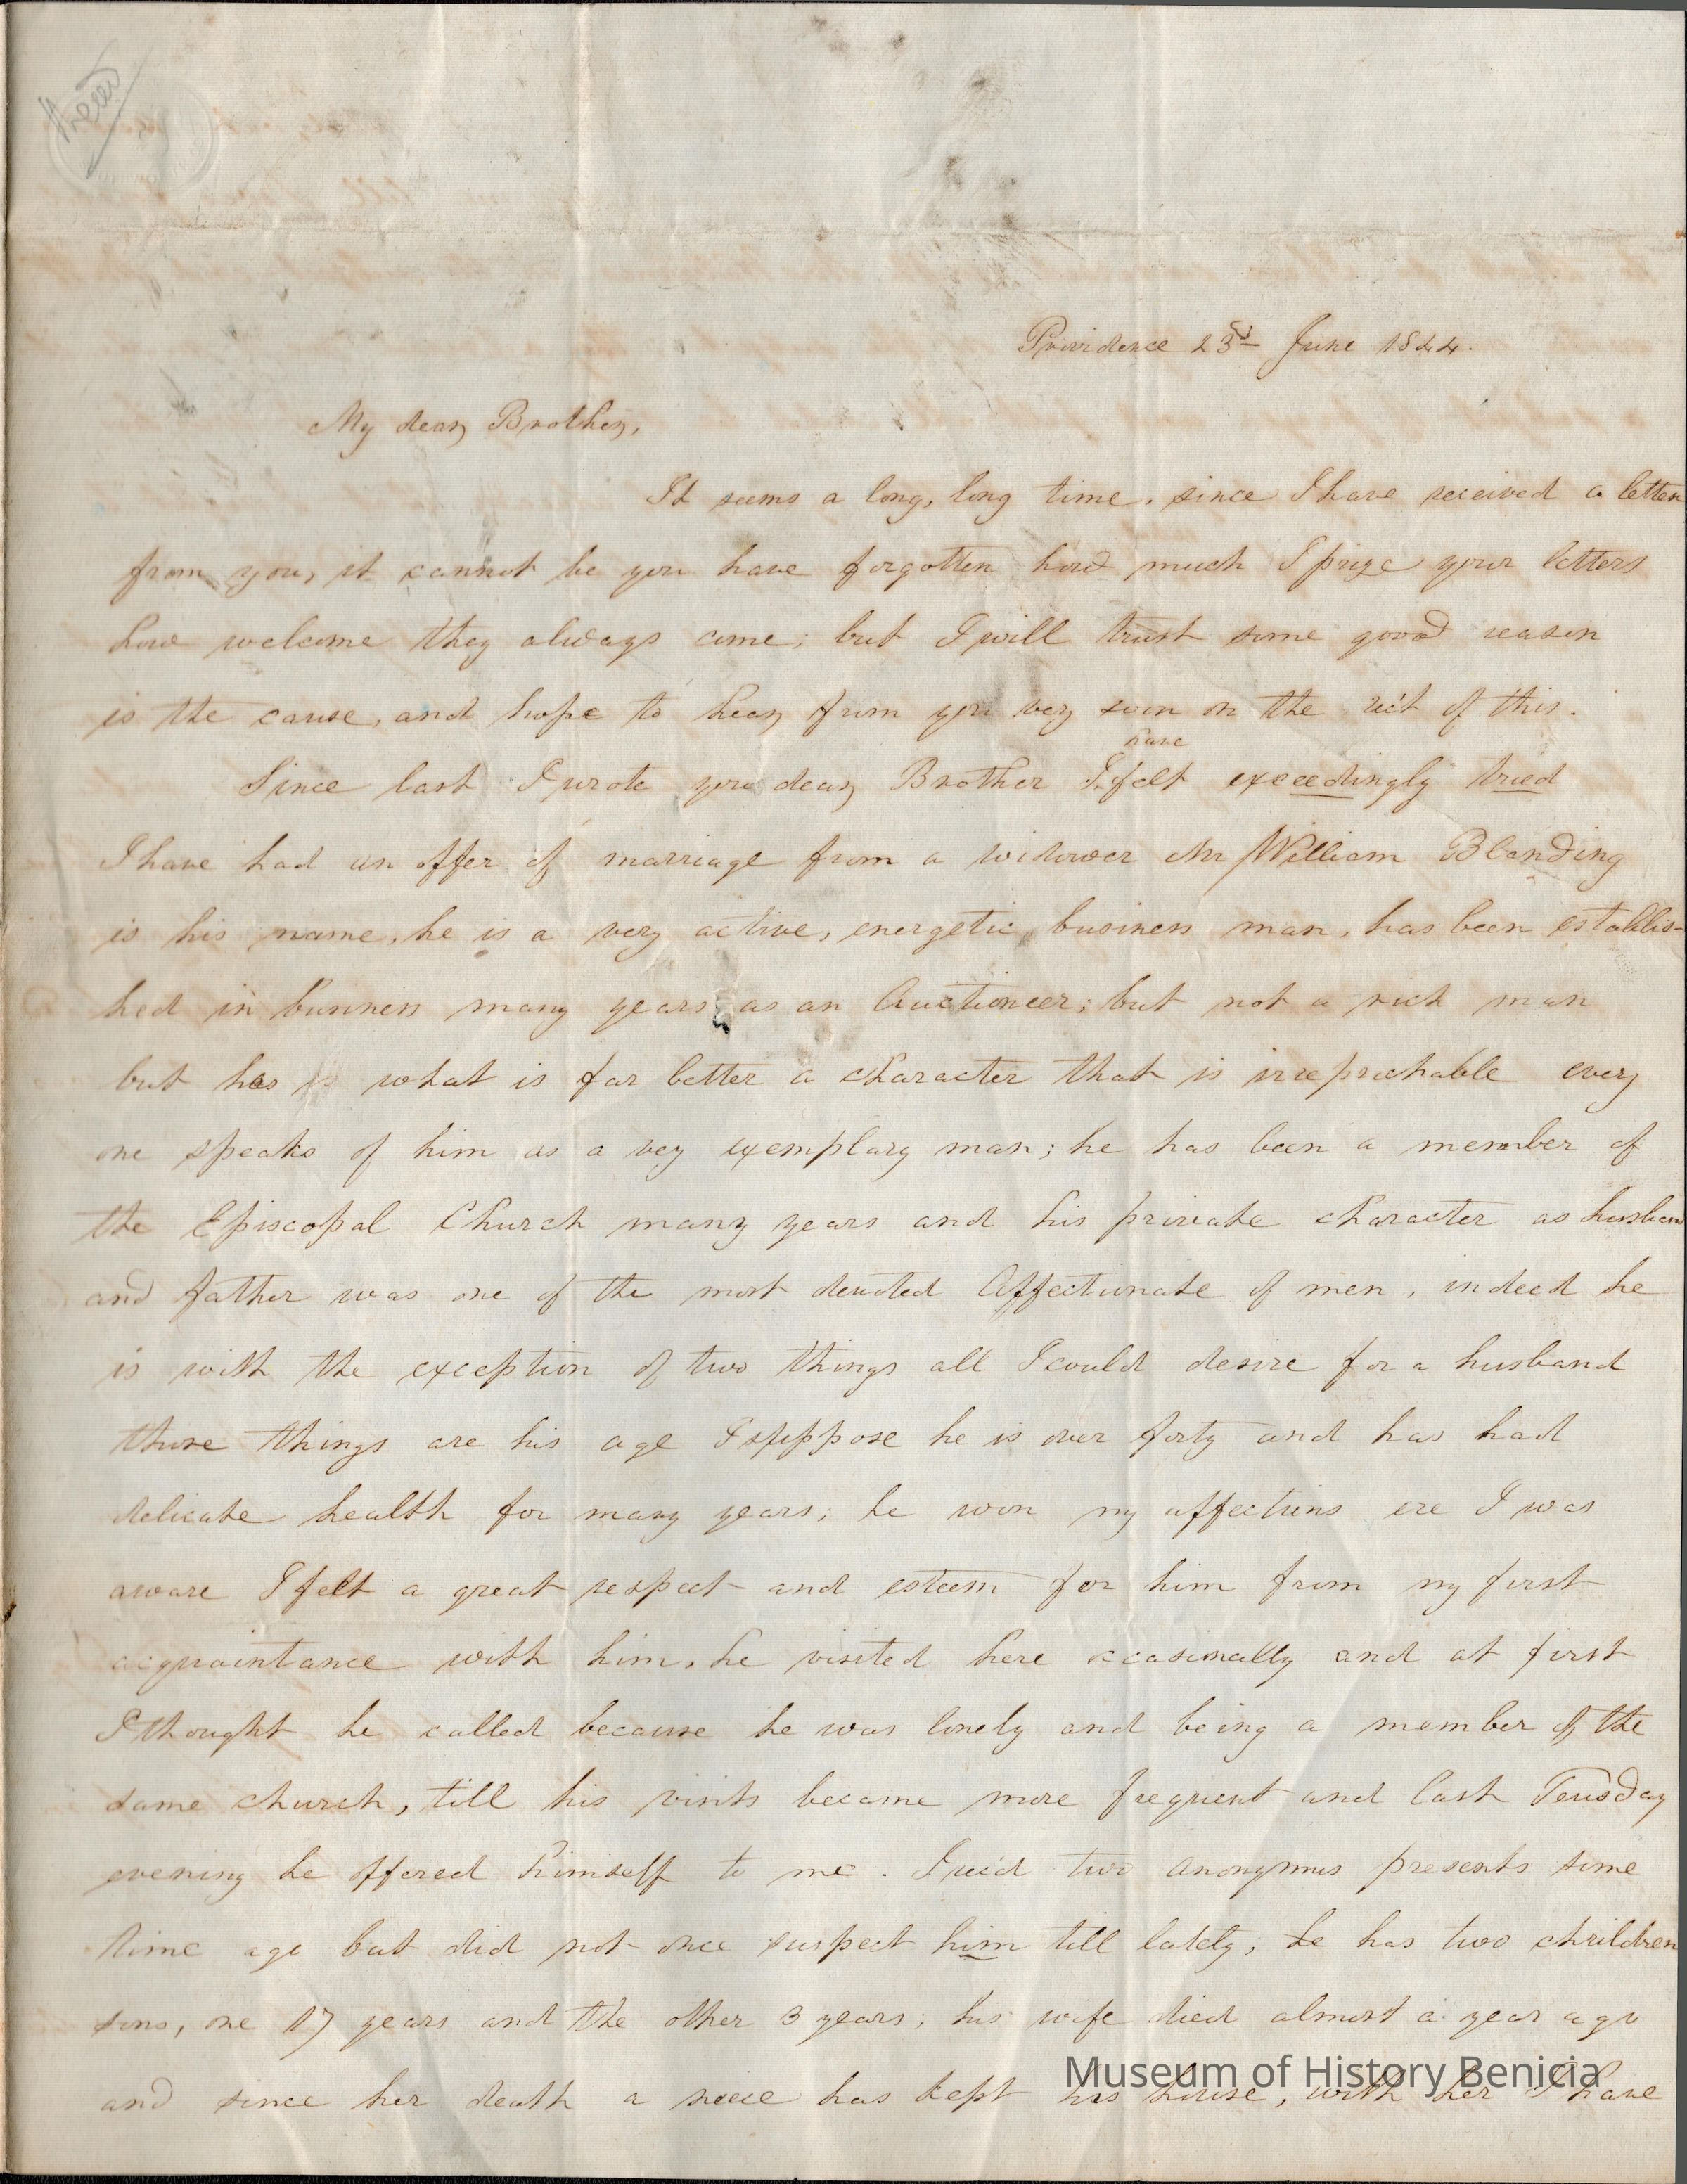 Providence 23rd June 1844.
My dear Brother,
It seems a long, long time, since I have received a letter
from you, it cannot be you have forgotten how much I prize your letters
how welcome they always come; but I will trust some good reason
is the cause, and hope to hear from you very soon on the rec't of this.
have
Since last I wrote you dear Brother I felt exceedingly tried
I have had an offer of marriage from a widower Mr William Blanding
is his name, he is a very active, energetic, business man, has been establis-
hed in business many years as an Auctioneer; but not a rich man
but has what is far better a character that is irreprochable every
one speaks of him as a very exemplary man; he has been a member of
the Episcopal Church many years and his private character as husband
and father was one of the most devoted Affectionate of men, indeed he
is with the exception of two things all I could desire for a husband
those things are his age I suppose he is over forty and has had
delicate health for many years; he won my affections ere I was
aware I felt a great respect and esteem for him from my first
acquaintance with him, he visited here occasionally and at first
I thought he called because he was lonely and being a member of the
same church, till his visits became more frequent and last Teusday
evening he offered himself to me. I rec'd two anonymus presents some
time ago but did not once suspect him till lately; he has two children
sons, one 17 years and the other 3 years; his wife died almost a year ago
and since her death a niece has kept his house, with her I have
Museum of History Benicia